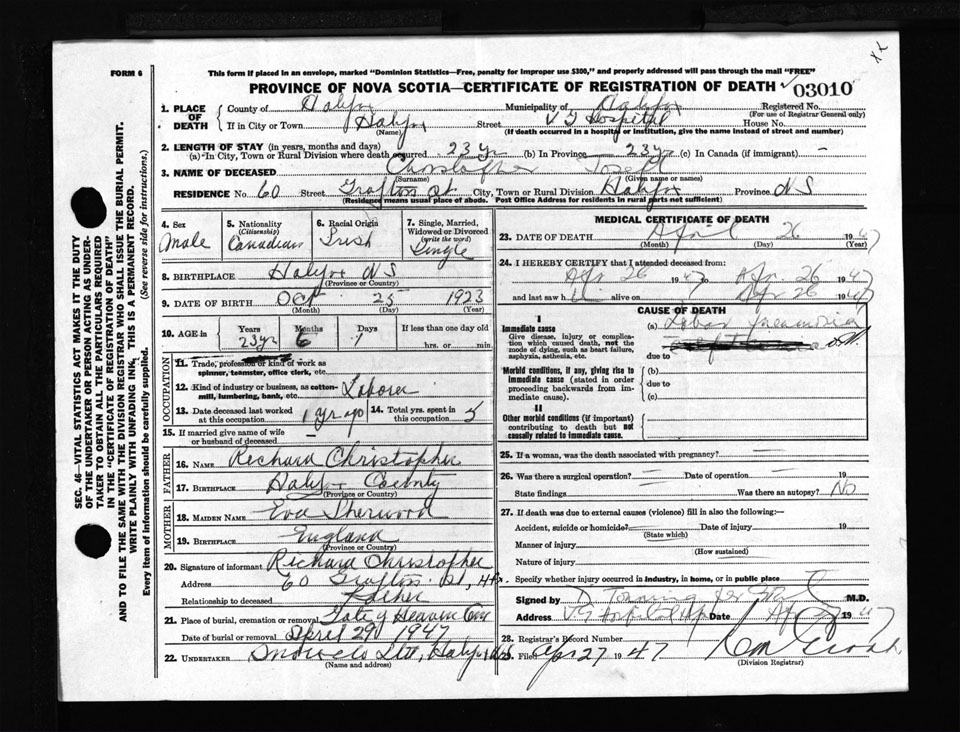 XX
FORM 6
This form if placed in an envelope, marked "Dominion Statistics—Free, penalty for improper use $300," and properly addressed will pass through the mail "FREE"
PROVINCE OF NOVA SCOTIA—CERTIFICATE OF REGISTRATION OF DEATH ✓ 03010
1. PLACE OF DEATH
County of Halifax Municipality of Halifax Registered No.
(For use of Registrar General only)
If in City or Town Halifax Street V G Hospital House No.
(Name) (If death occurred in a hospital or institution, give the name instead of street and number)
2. LENGTH OF STAY (in years, months and days)
(a) In City, Town or Rural Division where death occurred 23 yr (b) In Province 23 yr (c) In Canada (if immigrant) –
3. NAME OF DECEASED Christopher Joseph
(Surname) (Given name or names)
RESIDENCE No. 60 Street Grafton St. City, Town or Rural Division Halifax Province NS
(Residence means usual place of abode. Post Office Address for residents in rural parts not sufficient)
4. Sex
Male
5. Nationality
(Citizenship)
Canadian
6. Racial Origin
Irish
7. Single, Married, Widowed or Divorced
(write the word)
Single
8. BIRTHPLACE Halifax NS
(Province or Country)
9. DATE OF BIRTH Oct 25 1923
(Month) (Day) (Year)
10. AGE in
Years Months Days If less than one day
23 yr 6 1 hrs. or min.
OCCUPATION
11. Trade, profession or kind of work as
spinner, teamster, office clerk, etc.
12. Kind of industry or business, as cotton-
mill, lumbering, bank, etc. Laborer
13. Date deceased last worked at this occupation 1 yr ago
14. Total yrs. spent in this occupation 5
15. If married give name of wife
or husband of deceased –
FATHER
16. NAME Richard Christopher
17. BIRTHPLACE Halifax County
(Province or Country)
MOTHER
18. MAIDEN NAME Eva Sherwood
19. BIRTHPLACE England
(Province or Country)
20. Signature of informant Richard Christopher
Address 60 Grafton St, Hfx.
Relationship to deceased Father
21. Place of burial, cremation or removal Gate of Heaven Cem
Date of burial or removal April 29 1947
22. UNDERTAKER Snow & Co Ltd, Halifax NS
(Name and address)
MEDICAL CERTIFICATE OF DEATH
23. DATE OF DEATH April 26 1947
(Month) (Day) (Year)
24. I HEREBY CERTIFY that I attended deceased from:
Apr 26 1947 Apr 26 1947
and last saw him alive on Apr 26 1947
CAUSE OF DEATH
I
Immediate cause
Give disease, injury or complication which caused death, not the mode of dying, such as heart failure, asphyxia, asthenia, etc.
(a) Lobar Pneumonia
due to
Morbid conditions, if any, giving rise to immediate cause (stated in order proceeding backwards from immediate cause).
(b)
due to
(c)
II
Other morbid conditions (if important) contributing to death but not causally related to immediate cause.
25. If a woman, was the death associated with pregnancy?
26. Was there a surgical operation Date of operation 19
State findings Was there an autopsy? No
27. If death was due to external causes (violence) fill in also the following:—
Accident, suicide or homicide? Date of injury 19
(State which)
Manner of injury
(How sustained)
Nature of injury
Specify whether injury occurred in industry, in home, or in public place
Signed by M.D.
Address V G Hospital Date 1947
28. Registrar's Record Number
29. Filed Apr 27 1947
(Division Registrar)
SEC. 46—VITAL STATISTICS ACT MAKES IT THE DUTY
OF THE UNDERTAKER OR PERSON ACTING AS UNDER-
TAKER TO OBTAIN ALL THE PARTICULARS REQUIRED
IN THE "CERTIFICATE OF REGISTRATION OF DEATH"
AND TO FILE THE SAME WITH THE DIVISION REGISTRAR WHO SHALL ISSUE THE BURIAL PERMIT.
WRITE PLAINLY WITH UNFADING INK, THIS IS A PERMANENT RECORD.
Every item of information should be carefully supplied. (See reverse side for instructions.)